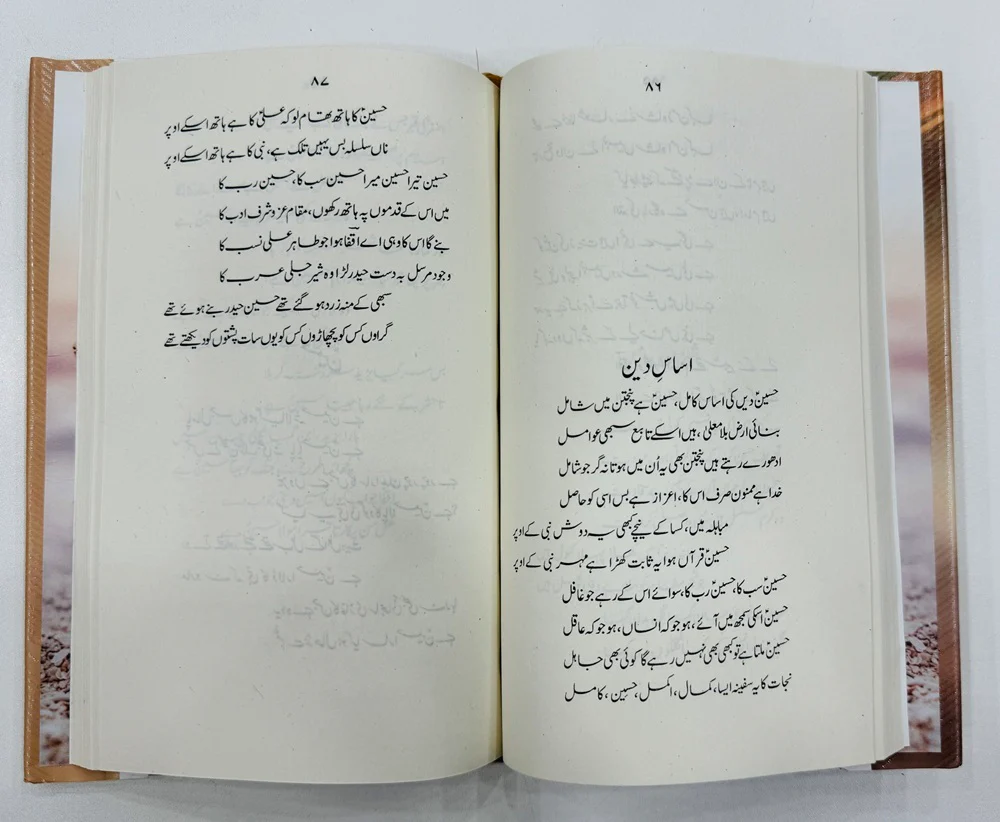 ۸۶
اساسِ دین
حسینؑ دیں کی اساس کامل، حسینؑ ہے پنجتن میں شامل
بنائی ارض بلا معلیٰ، ہیں اسکے تابع سبھی عوامل
ادھورے رہتے ہیں پنجتن بھی یہ اُن میں ہوتا نہ گر جو شامل
خدا ہے ممنون صرف اس کا، اعزاز ہے بس اسی کو حاصل
مباہلہ میں، کسا کے نیچے کبھی یہ دوش نبی کے اوپر
حسینؑ قرآں ہوا یہ ثابت کھڑا ہے مہر نبی کے اوپر
حسینؑ سب کا، حسینؑ رب کا، سوائے اس کے رہے جو غافل
حسینؑ اسکی سمجھ میں آئے، ہو جو کہ انساں، ہو جو کہ عاقل
حسینؑ ملتا ہے تو کبھی بھی نہیں رہے گا کوئی بھی جاہل
نجات کا یہ سفینہ ایسا، کمال، اکمل، حسین، کامل
۸۷
حسینؑ کا ہاتھ تھام لو کہ علیؑ کا ہے ہاتھ اسکے اوپر
ناں سلسلہ بس یہیں تلک ہے، نبی کا ہے ہاتھ اسکے اوپر
حسین تیرا حسین میرا حسین سب کا، حسین رب کا
میں اس کے قدموں پہ ہاتھ رکھوں، مقام عز و شرف ادب کا
بنے گا اس کا وہی اے آقفا ہوا جو طاہر علی نسب کا
وجود مرسل بہ دست حیدر لڑا وہ شیر جلی عرب کا
سبھی کے منہ زرد ہو گئے تھے حسین حیدر بنے ہوئے تھے
گراوں کس کو پچھاڑوں کس کو یوں سات پشتوں کو دیکھتے تھے